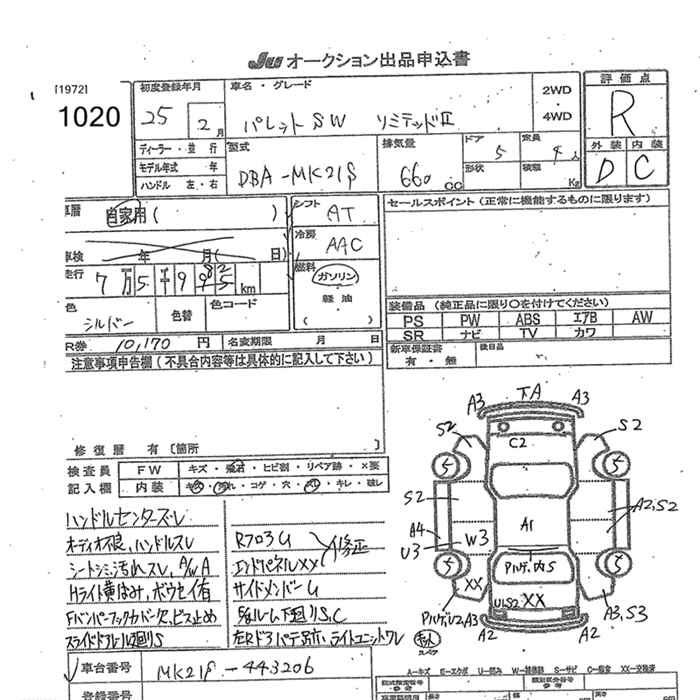 JU オークション出品申込書
[1972]
1020
初度登録年月
25 2月
車名・グレード
パレットSW リミテッドII
2WD
・
4WD
評価点
R
外装 内装
D C
ディーラー・並行
モデル年式 年
ハンドル 左・右
型式
DBA-MK21S
排気量
660 cc
ドア
5
定員
4人
形状
積載
Kg
車歴
自家用( )
シフト
AT
セールスポイント(正常に機能するものに限ります)
車検 年 月( 日)
冷房
AAC
走行
km
燃料
ガソリン
軽油
( )
色
シルバー
色替
色コード
装備品(純正品に限り○を付けてください)
PS PW ABS エアB AW
SR ナビ TV カワ
R券 10,170 円
名変期限 月 日
新車保証書
有・無
後日品
注意事項申告欄(不具合内容等は具体的に記入して下さい)
修復歴 有〔箇所
検査員 FW キズ・飛石・ヒビ割・リペア跡・×要
記入欄 内装 キズ・汚れ・コゲ・穴・スレ・キレ・破レ
ハンドルセンターズレ
オーディオ不良、ハンドルスレ
シートシミ、汚れスレ、A/W A
Hライト黄ばみ、ボウセイ有
Fバンパーフックカバー欠、ビス止め
RフロアU
エンドパネルXX
修正
サイドメンバーU
S、C
下A
A3 A3
S2 S2
C2
5 5
S2
A1
A2,S2
A4
U3
W3
5 5
Rゲート内S
XX
U1S2 XX
Rゲート U2,A3
A3,S3
A2 A2
車台番号
MK21S-443206
A…キズ E…エクボ U…凹み W…補修跡 S…サビ C…腐食 XX…交換済
登録番号